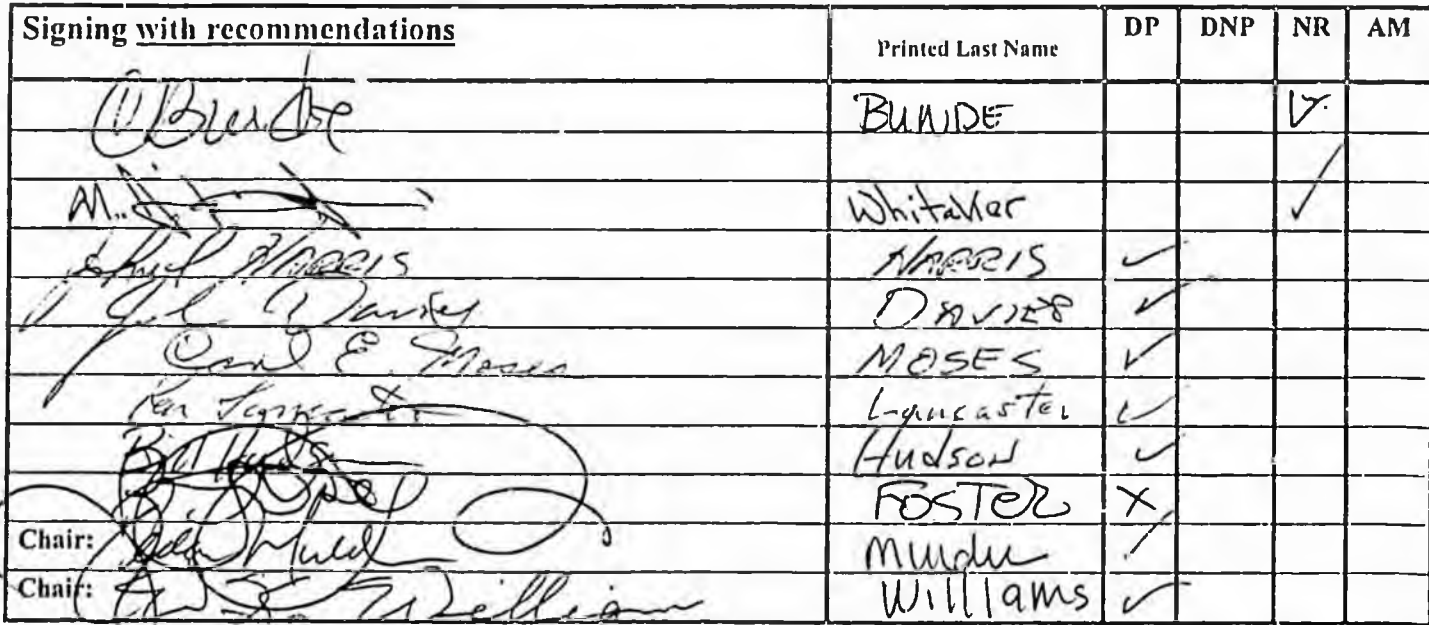 Signing with recommendations Printed Last Name DP DNP NR AM
Bunde BUNDE ✓
M. Whitaker ✓
HARRIS HARRIS ✓
Davies DAVIES ✓
Carl E. Moses MOSES ✓
Ken Lancaster Lancaster ✓
Bill Hudson Hudson ✓
FOSTER X
Chair: Mulder ✓
Chair: Williams Williams ✓